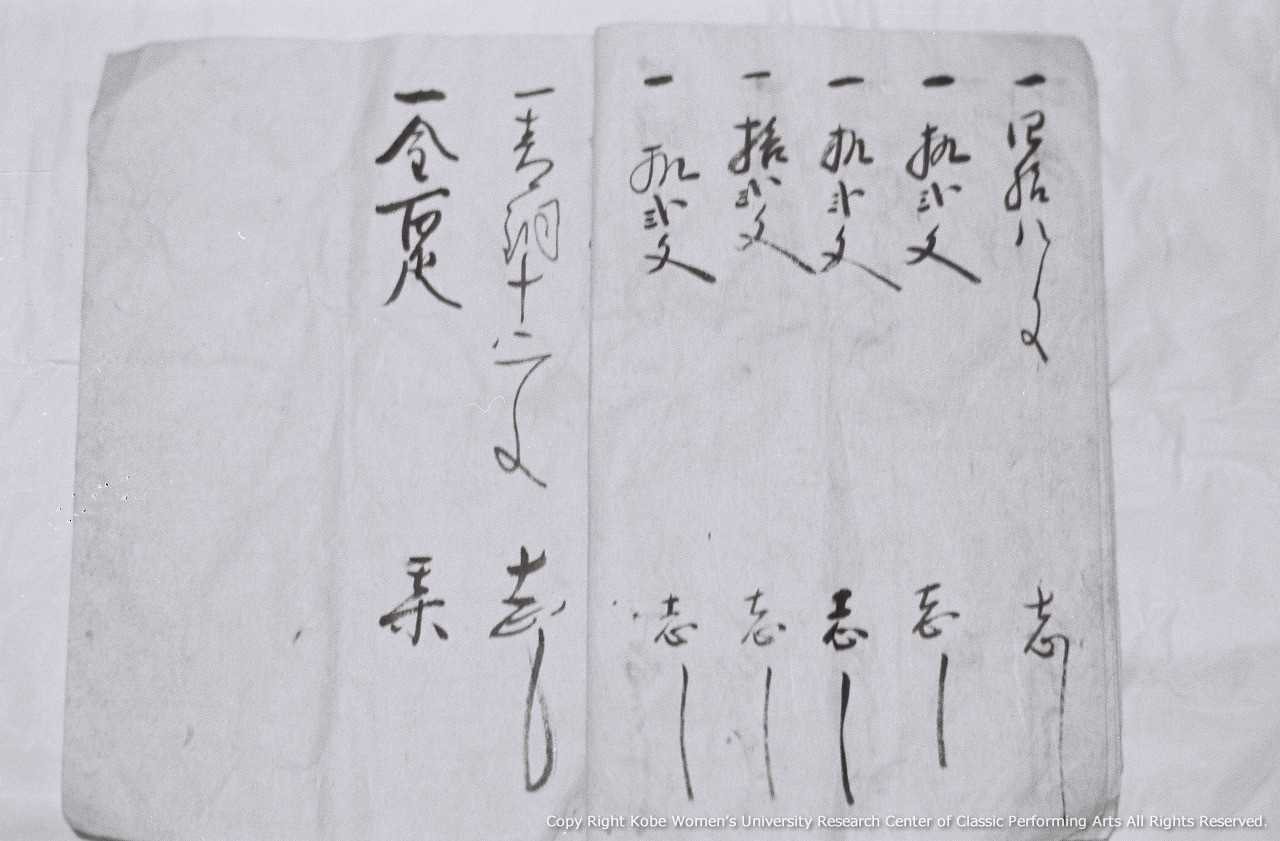 一 四拾八文 志
一 拾弐文 志
一 拾弐文 志
一 拾弐文 志
一 拾弐文 志
一 青銅十二文 志
一 金百疋
Copy Right Kobe Women's University Research Center of Classic Performing Arts All Rights Reserved.